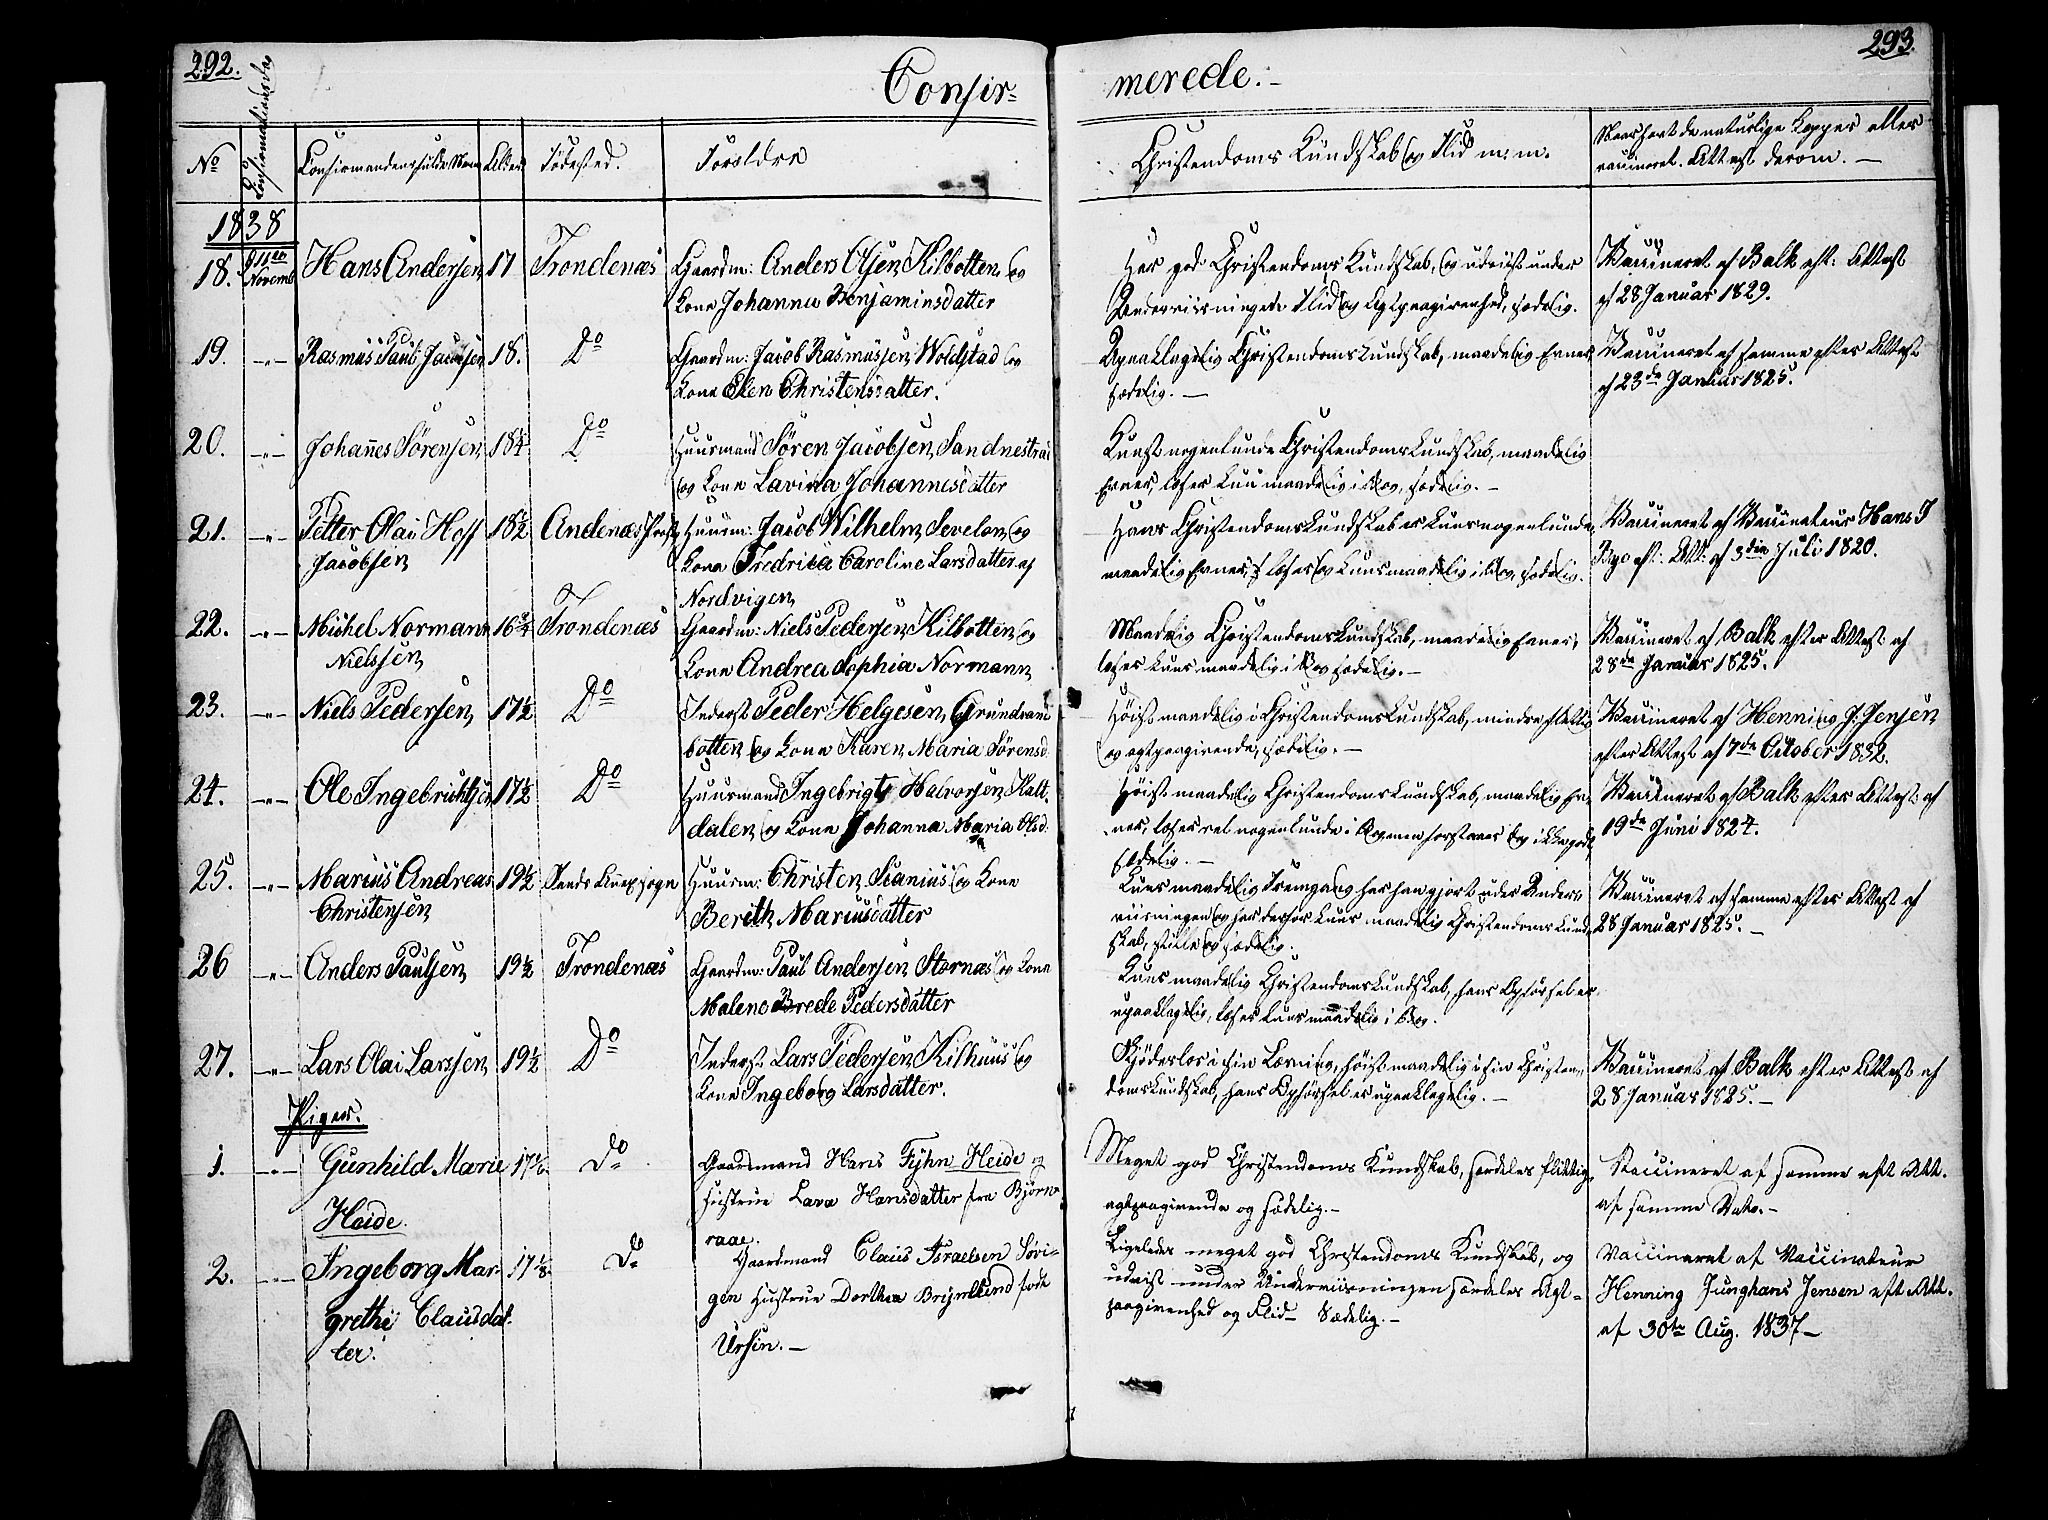 292.
293.
Confir=
merede.-
No
Confirmationsdag
Confirmandens fulde Navn
Alder
Födested.
Foreldre
Christendoms Kundskab og Flid m:m.
Naar havt de naturlige Kopper eller
vaccineret. Attest derom. —
1838
18. d 11te Novemb Hans Andersen 17 Trondenæs Gaardm: Anders Olsen Kilbotten og
Kone Johanna Benjaminsdatter
Har god Christendoms Kundskab, og udviist under
Underviisningen Flid og Agtpaagivenhed, sædelig.
Vaccineret af Balk eft: Attest
af 28 Januar 1829.
19. -"- Rasmus Paul Jacobsen 18. Do Gaardm: Jacob Rasmussen Woldstad og
Kone Elen Christensdatter.
Upaaklagelig Christendomskundskab, maadelig Evner
sædelig. —
Vaccineret af samme efter Attest
af 23de Januar 1825.
20. -"- Johannes Sörensen 18¼ Do Huusmand Sören Jacobsen Sandnestrae
og Kone Lavina Johannesdatter
Kuns nogenlunde Christendomskundskab, maadelig
Evner, læser kun maadelig i Bog, sædelig. -
21. -"- Petter Olai Hoff 18½ Andenæs Præst Huusm: Jacob Wilhelm Sevelon og
Jacobsen
Kone Fredrica Caroline Larsdatter af
Nordvigen
Hans Christendomskundskab er kuns nogenlunde,
maadelig Evner, læser og kuns maadelig i Bog, sædelig.
Vaccineret af Vaccinateur Hans J
Bye eft: Att: af 3die Juli 1820.
22. -"- Michel Normann 16¾ Trondenæs Gaardm: Niels Pedersen Kilbotten og
Nielssen
Kone Andrea Sophia Normann
Maadelig Christendomskundskab, maadelig Evner,
læser kuns maadelig i Bog sædelig. -
Vaccineret af Balk efter Attest af
28de Januar 1825.
23. -"- Niels Pedersen 17½ Do Inderst Peder Helgesen Grundvand
botten og Kone Karen Maria Sörensd
Höist maadelig i Christendomskundskab, mindre flittig
og agtpaagivende, sædelig. -
Vaccineret af Henning J. Jensen
efter Attest af 7de October 1832.
24. -"- Ole Ingebrichtsen 17½ Do Huusmand Ingebrigt Halvorsen Kalt-
dalen og Kone Johanna Maria Olsd:
Höist maadelig Christendomskundskab, maadelig Ev-
ner, læser ret nogenlunde i Bog men forstaaer og ikke godt,
sædelig. —
Vaccineret af Balk efter Attest af
19de Juni 1824.
25. -"- Marius Andreas 19½ Sands Annexsogn Huusm: Christen Sianius og Kone
Christensen
Berith Mariusdatter
Kuns maadelig Fremgang har han gjort under Under-
viisningen og har derfor kuns maadelig Christendoms Kund-
skab, stille og sædelig.
Vaccineret af samme efter Attest af
28 Januar 1825. -
26 -"- Anders Paulsen 19½ Trondenæs Gaardm: Paul Andersen Stornæs og Kone
Malene Brede Pedersdatter
Kuns maadelig Christendomskundskab, hans Opförsel er
upaaklagelig, læser kuns maadelig i Bog.
27. -"- Lars Olai Larssen 19½ Do Inderst Lars Pedersen Kilhuus og
Kone Ingeborg Larsdatter.
Skjödeslös i sin Læsning, höist maadelig i sin Christen-
domskundskab, hans Opförsel er upaaklagelig. -
Vaccineret af Balk efter Attest af
28 Januar 1825. -
Piger.
1. -"- Gunhild Marie 17 do Gaardmand Hans Fyhn Heide og
Heide.
hustrue Lava Hansdatter fra Björn-
raae.
Meget god Christendoms Kundskab, særdeles flittig,
agtpaagivende og sædelig. -
Vaccineret af samme eft Att.
af samme Dato. -
2. -"- Ingeborg Mar- 17⅛ do Gaardmand Claus Israelsen Sövi-
grethe Clausdat-
ter.
gen Hustrue Dorthea Brynlund föde
Ursin. —
Ligeledes meget god Christendoms Kundskab, og
udviist under Underviisningen særdeles Agt-
paagivenhed og Flid - Sædelig. -
Vaccineret af Vaccinateur
Henning Junghans Jensen eft Att.
af 30te Aug. 1837 -